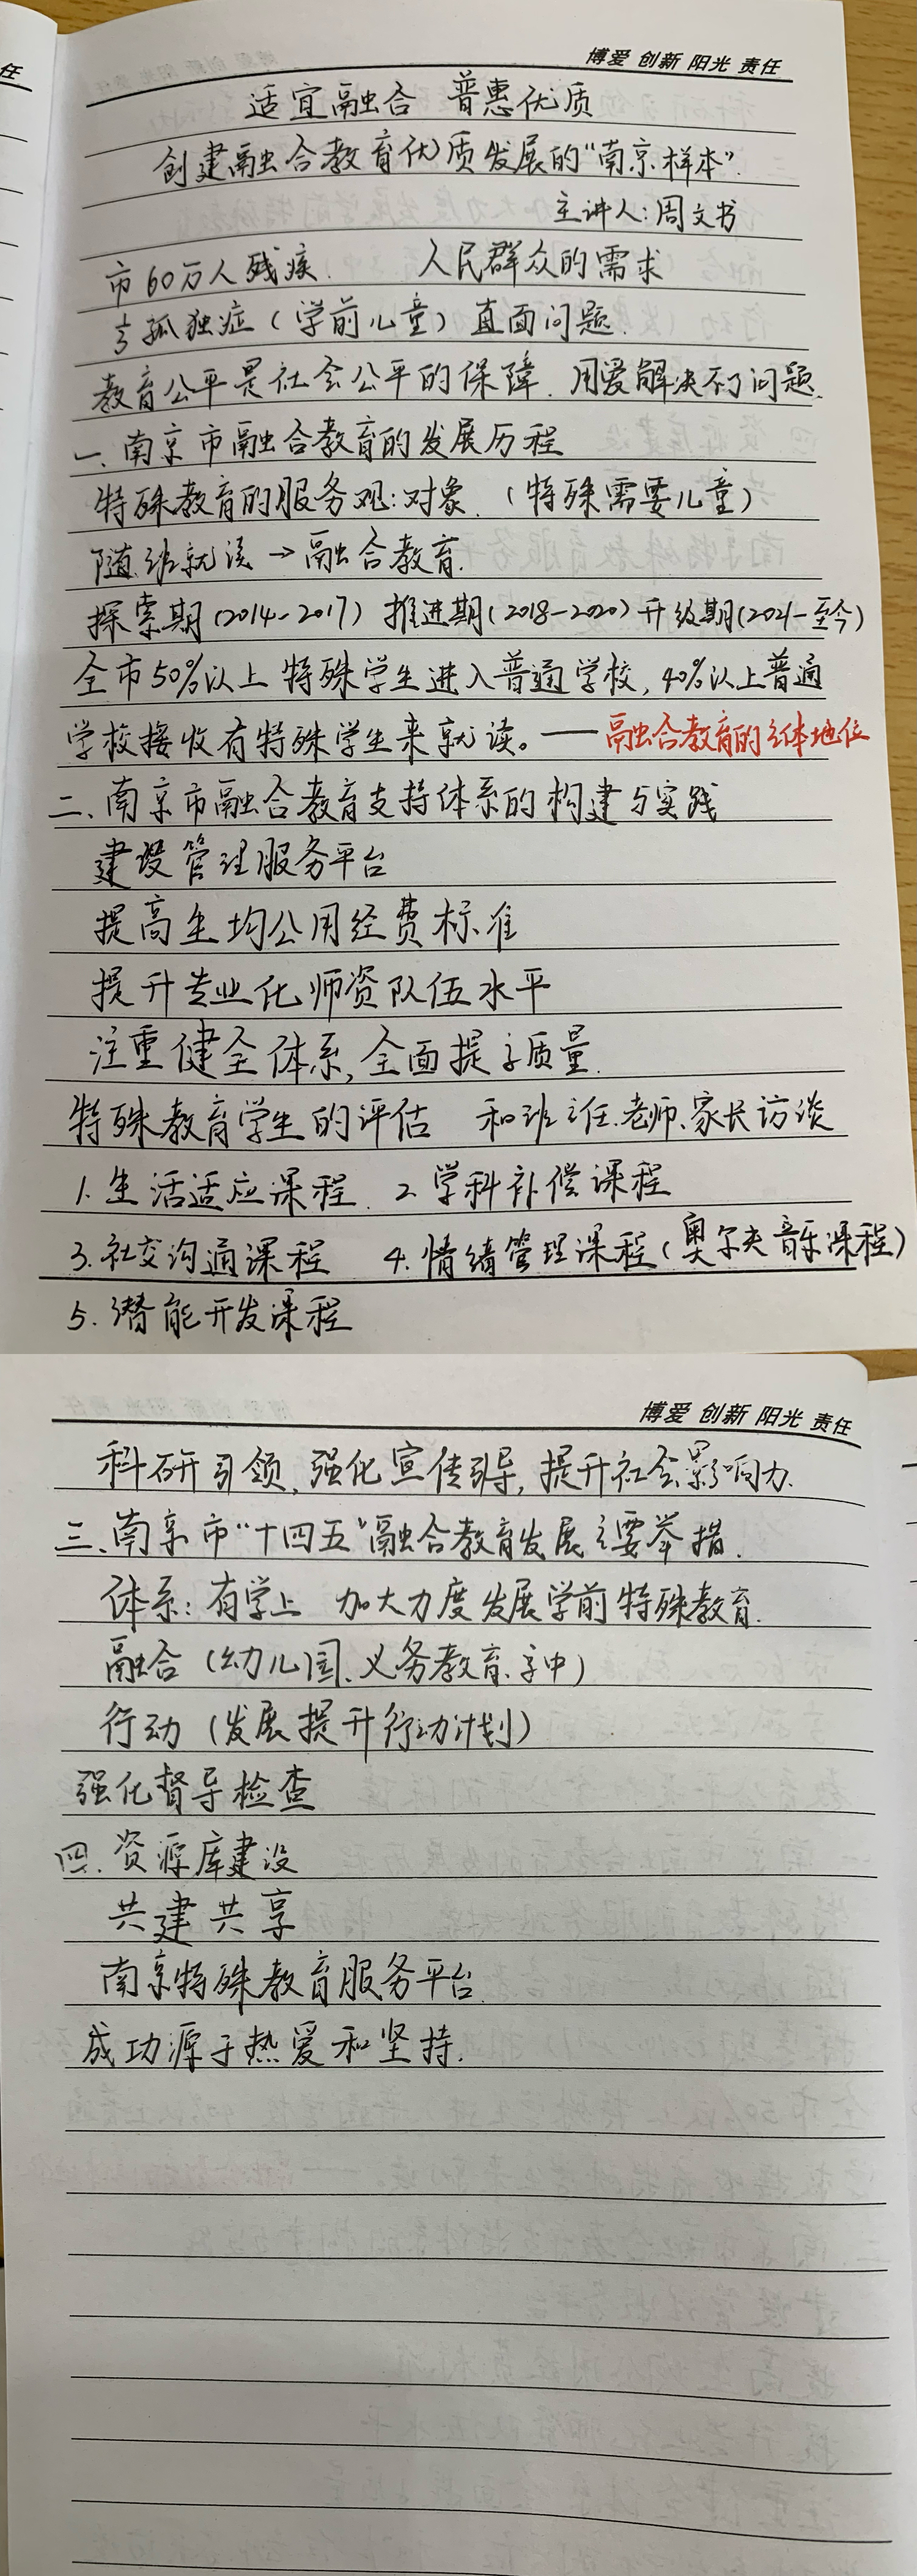 任
博爱 创新 阳光 责任
适宜融合 普惠优质
创建融合教育优质发展的“南京样本”.
主讲人:周文书
市60万人残疾. 人民群众的需求
孤独症(学前儿童)直面问题.
教育公平是社会公平的保障. 用爱解决不了问题.
一、南京市融合教育的发展历程
特殊教育的服务观:对象.(特殊需要儿童)
随班就读→融合教育.
探索期(2014-2017) 推进期(2018-2020)升级期(2021-至今)
全市50%以上特殊学生进入普通学校,40%以上普通
学校接收有特殊学生来就读。——融合教育的主体地位
二、南京市融合教育支持体系的构建与实践
建设管理服务平台
提高生均公用经费标准
提升专业化师资队伍水平
注重健全体系,全面提高质量.
特殊教育学生的评估 和班主任.老师、家长访谈
1.生活适应课程. 2.学科补偿课程
3.社交沟通课程 4.情绪管理课程(奥尔夫音乐课程)
5.潜能开发课程
博爱 创新 阳光 责任
科研引领,强化宣传引导,提升社会影响力.
三、南京市“十四五”融合教育发展主要举措.
体系:有学上 加大力度发展学前特殊教育.
融合(幼儿园、义务教育、高中)
行动(发展提升行动计划)
强化督导检查
四.资源库建设
共建共享
南京特殊教育服务平台.
成功源于热爱和坚持.